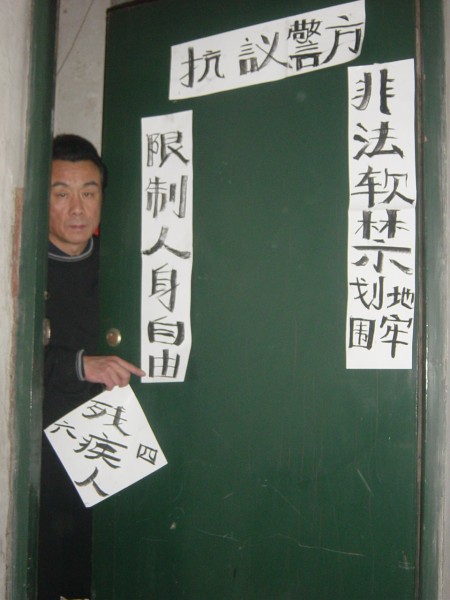 抗议警方
非法软禁
划地
围牢
限制人身自由
六四
残疾人